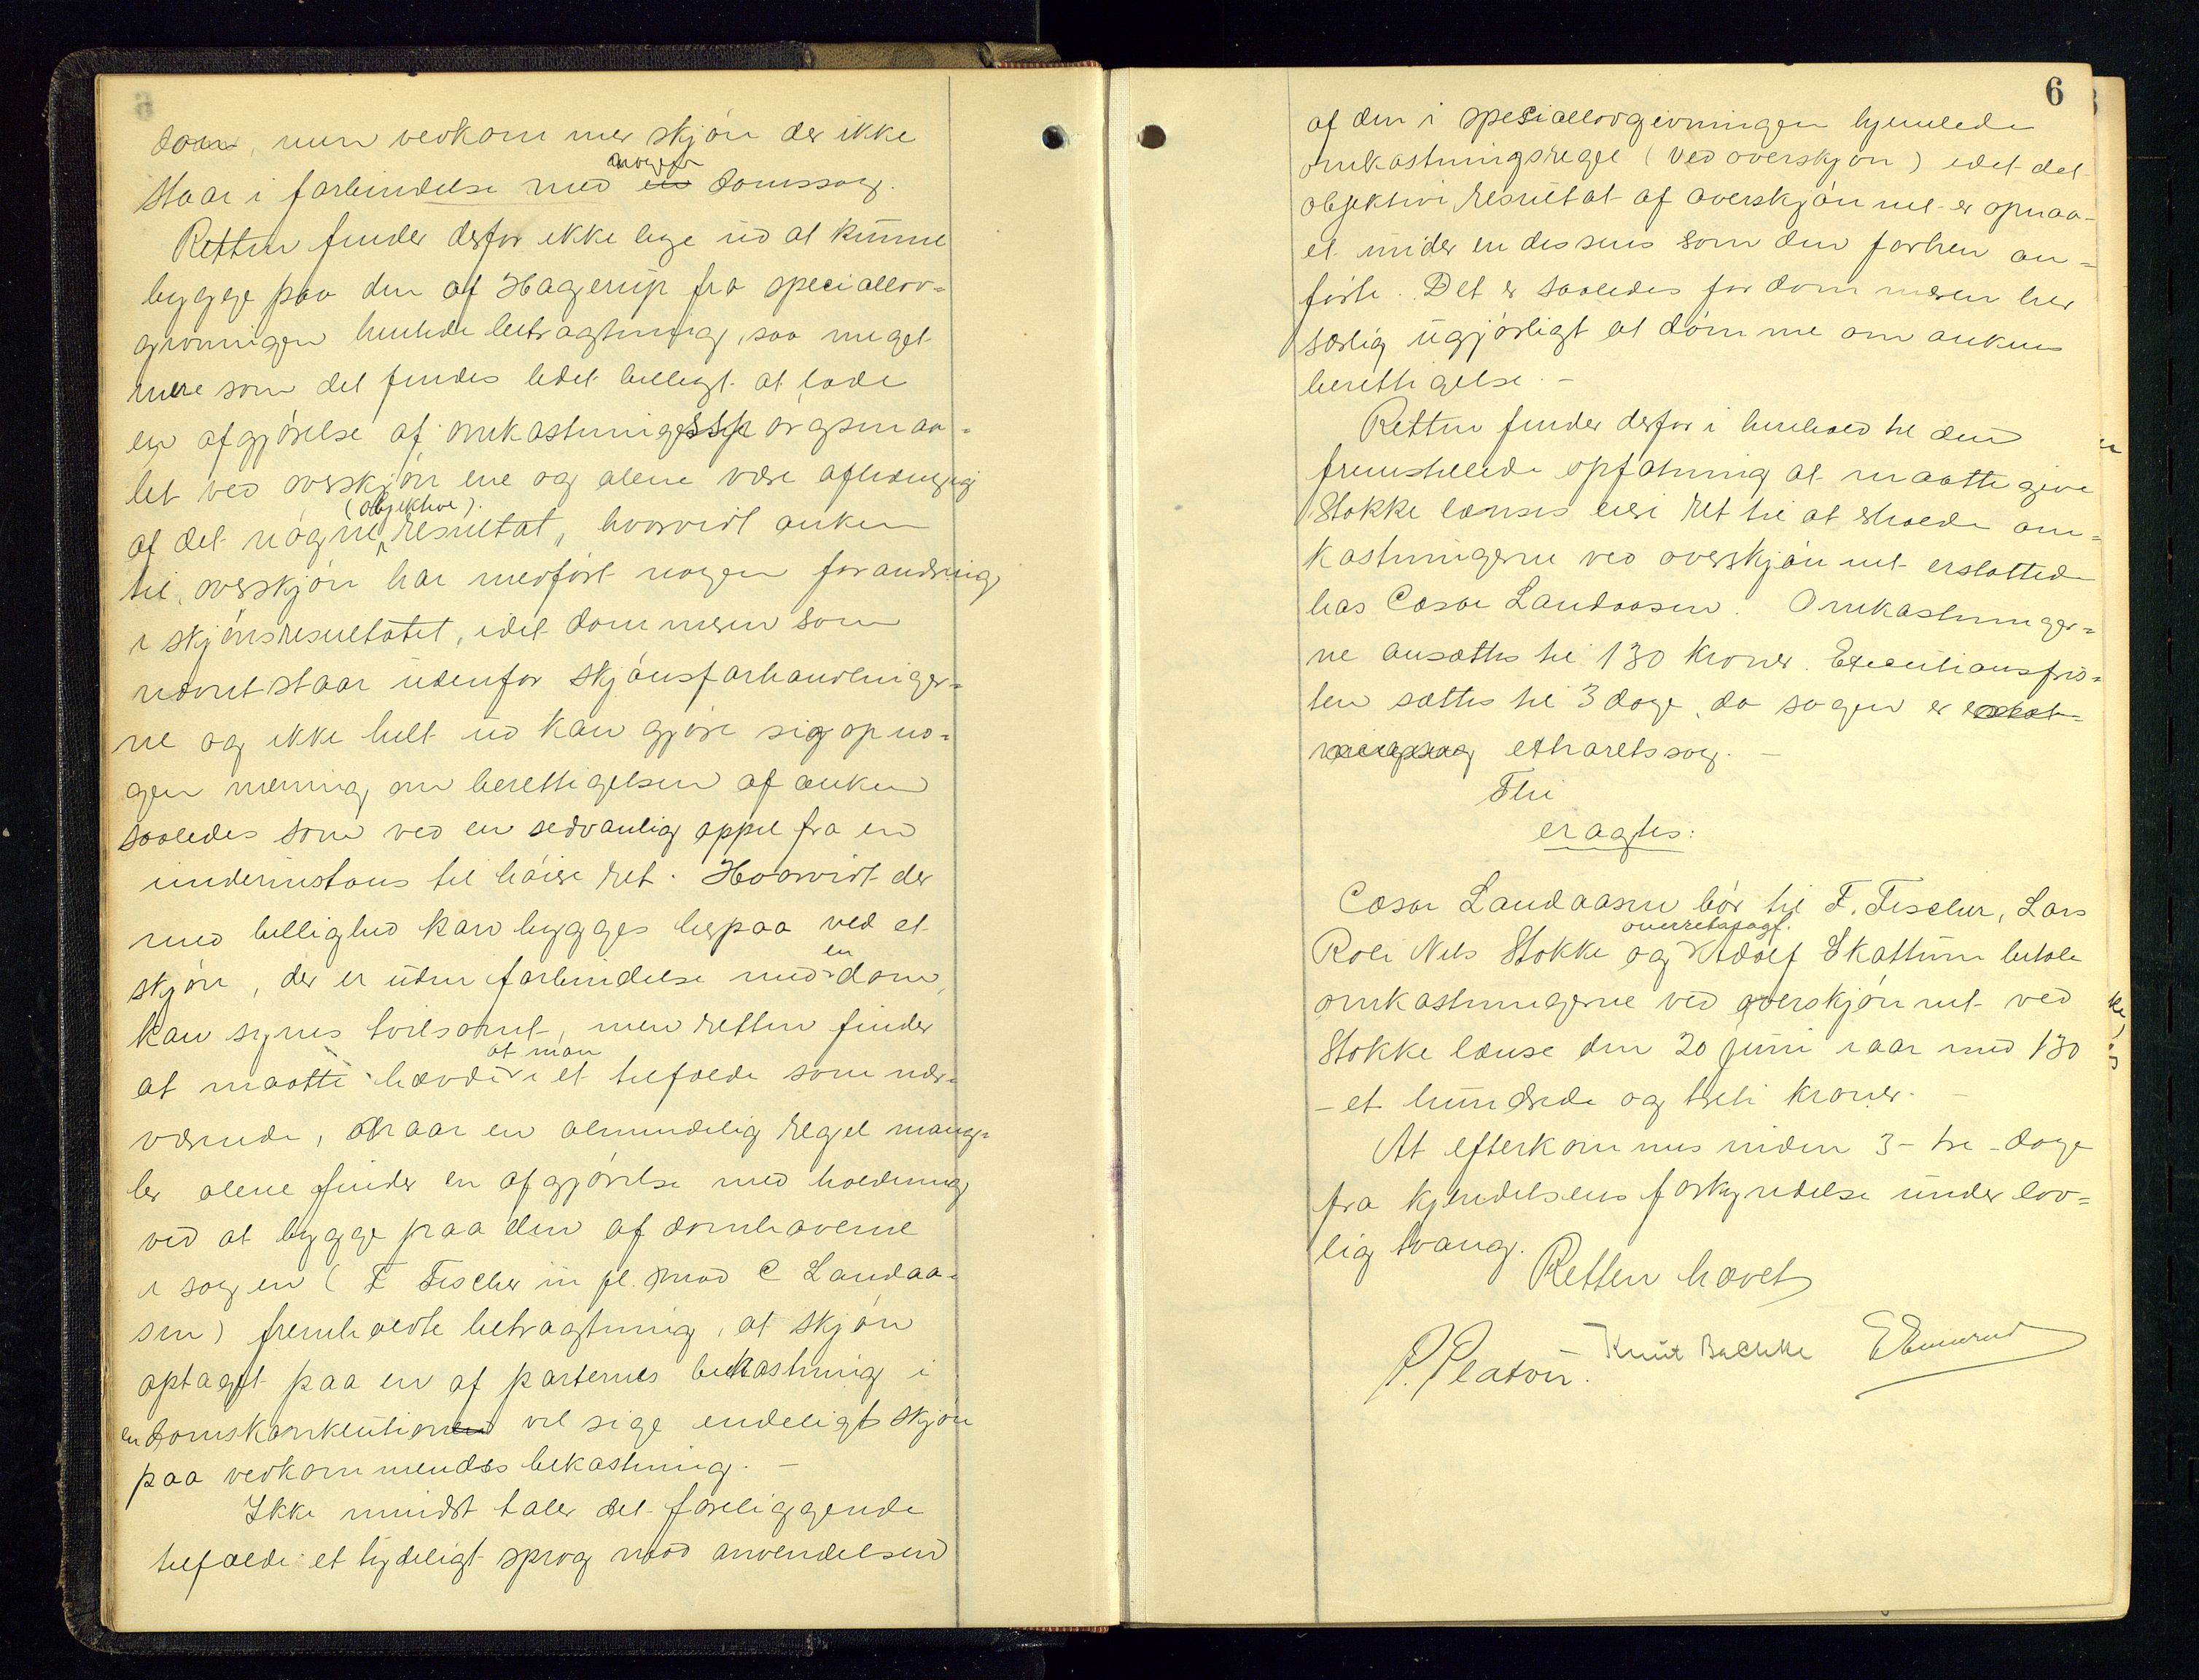 dom, men vedkommer skjøn der ikke
staar i forbindelse med nogen domssag.
Retten finder derfor ikke lige ud at kunne
bygge paa den af Hagerup fra speciallov=
givningen hentede betragtning, saa meget
mere som det findes lidet billigt at lade
en afgjørelse af omkastningsspørgsmaa=
let ved overskjønene og alene være afhængig
af det nøgne (objektive) resultat, hvorvidt anken
til overskjøn har medført nogen forandring
i skjønsresultatet, idet dommeren som
nævnt staar udenfor skjønsforhandlinger=
ne og ikke helt ud kan gjøre sig op no=
gen mening om berettigelsen af anken
saaledes som ved en sedvanlig appel fra en
underinstans til høiere ret. Hvorvidt der
med billighed kan bygges herpaa ved et
skjøn, der er uden forbindelse med en dom,
kan synes tvilsomt, men retten finder
at maatte hævde at man i et tilfælde som nær=
værende, naar en almindelig regel mang=
ler alene finder en afgjørelse med holdning
ved at bygge paa den af domhaverne
i sagen (F Fischer m fl. mod C Landaa=
sen) fremholdte betragtning, at skjøn
optaget paa en af parternes bekostning i
en domskonklution vil sige endeligt skjøn
paa vedkommendes bekostning. –
Ikke mindst taler det foreliggende
tilfælde et tydeligt sprog mod anvendelsen
6
af den i speciallovgivningen hjemlede
omkastningsregel (ved overskjøn) idet det
objektive resultat af overskjønnet er opnaa=
et under en dissens som den forhen an=
førte. Det er saaledes for dommeren her
særlig ugjørligt at dømme om ankens
berettigelse. –
Retten finder derfor i henhold til den
fremstillede opfatning at maatte give
Stokke lænses eiere ret til at erholde om=
kastningerne ved overskjønnet erstattede
hos Cæsar Landaasen. Omkastninger=
ne ansættes til 130 kroner. Executionsfris=
ten sættes til 3 dage, da sagen er
extraretssag. –
Thi
eragtes:
Cæsar Landaasen bør til F. Fischer, Lars
Roli Nils Stokke og overretssagf. Adolf Skattum betale
omkastningerne ved overskjønnet ved
Stokke lænse den 20 juni iaar med 130
– et hundrede og treti kroner. –
At efterkommes inden 3 – tre – dage
fra kjendelsens forkyndelse under lov=
lig tvang.
Retten hævet
P. Platou. Knut Bachke